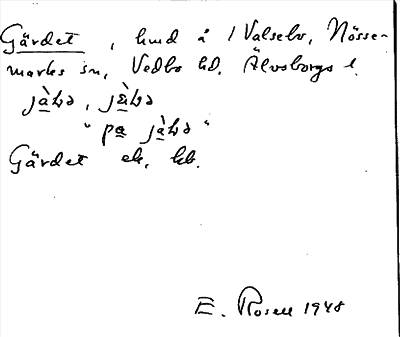 Gärdet, hmd å 1 Valsebo, Nösse-
marks sn, Vedbo hd. Älvsborgs l.
"på
Gärdet ek. kb.
E. Rosell 1948